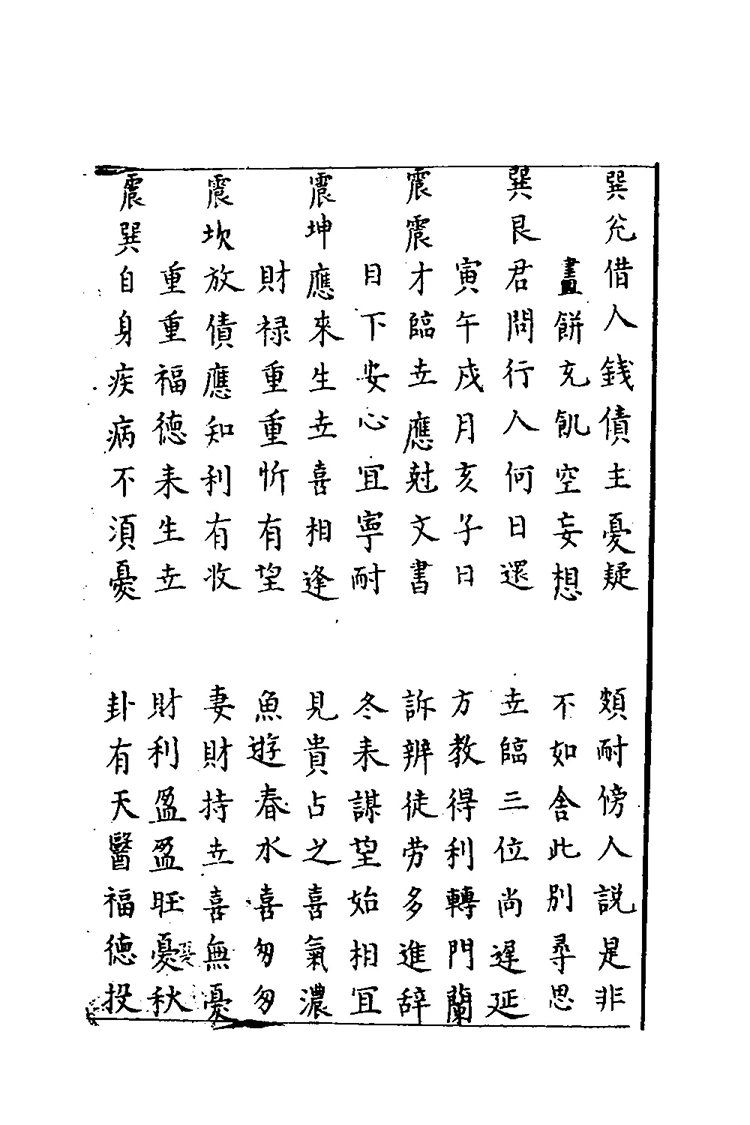 巽兊借人錢債主憂疑　頗耐傍人說是非
畫餅充飢空妄想　不如舍此別尋思
巽艮君問行人何日還　㔺臨三位尚遲延
寅午戌月亥子日　方教得利轉門蘭
震震才臨㔺應尅文書　訴辨徒劳多進辞
目下安心宜寧耐　冬来謀望始相宜
震坤應來生㔺喜相逢　見貴占之喜氣濃
財禄重重忻有望　魚遊春水喜匆匆
震坎放債應知利有收　妻財持㔺喜無憂
重重福德来生㔺　財利盈盈旺憂秋
震巽自身疾病不須憂　卦有天醫福德投